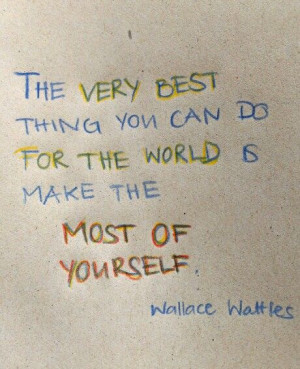 THE VERY BEST
THING YOU CAN DO
FOR THE WORLD IS
MAKE THE
MOST OF
YOURSELF.
Wallace Wattles